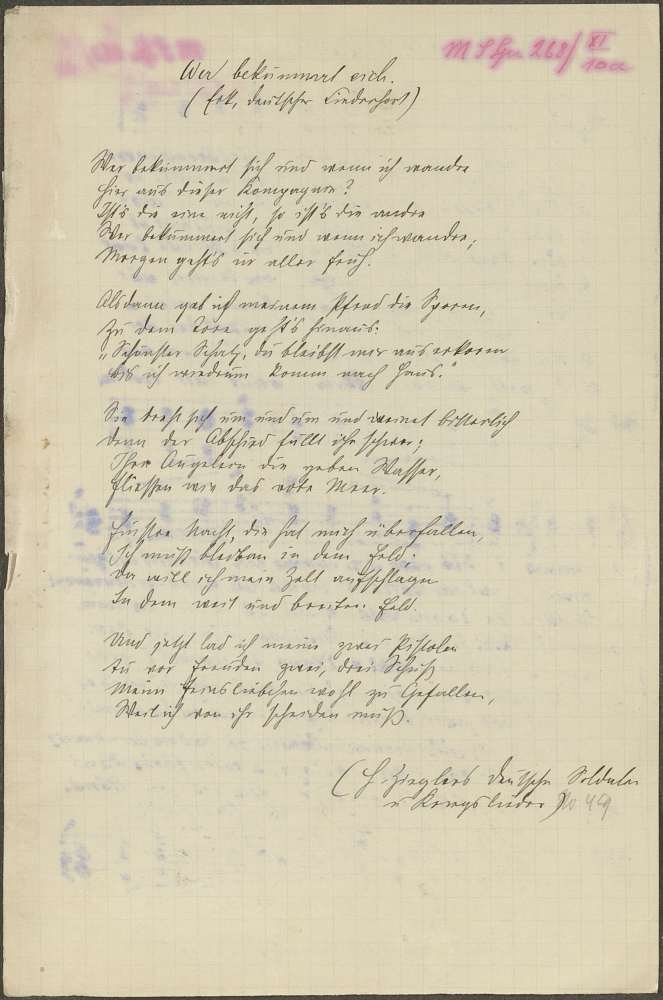 M S Gu 268/ XI
10a
Wer bekümmert sich.
(Erk, deutscher Liederhort)
Wer bekümmert sich und wenn ich wandre
Hier aus dieser Kompagnie?
Ist's die eine nicht, so ist's die andre
Wer bekümmert sich und wenn ich wandre,
Morgen geht's in aller Früh.
Alsdann geb ich meinem Pferd die Sporen,
Zu dem Tore geht's hinaus:
"Schönster Schatz, du bleibst mir auserkoren
bis ich wiedrum komm nach Haus."
Sie dreht sich um und um und weinet bitterlich
denn der Abschied fällt ihr schwer;
Ihre Äugelein die geben Wasser,
fließen wie das rote Meer.
Finstre Nacht, die hat mich überfallen,
Ich muß bleiben in dem Feld.
Da will ich mein Zelt aufschlagen
In dem weit und breiten Feld.
Und jetzt lad ich meine zwei Pistolen
Tu vor Freuden zwei, drei Schuß
Meim Feinsliebchen wohl zu Gefallen,
Weil ich von ihr scheiden muß.
(H. Zieglers Deutsche Soldaten
u Kriegslieder) No 449